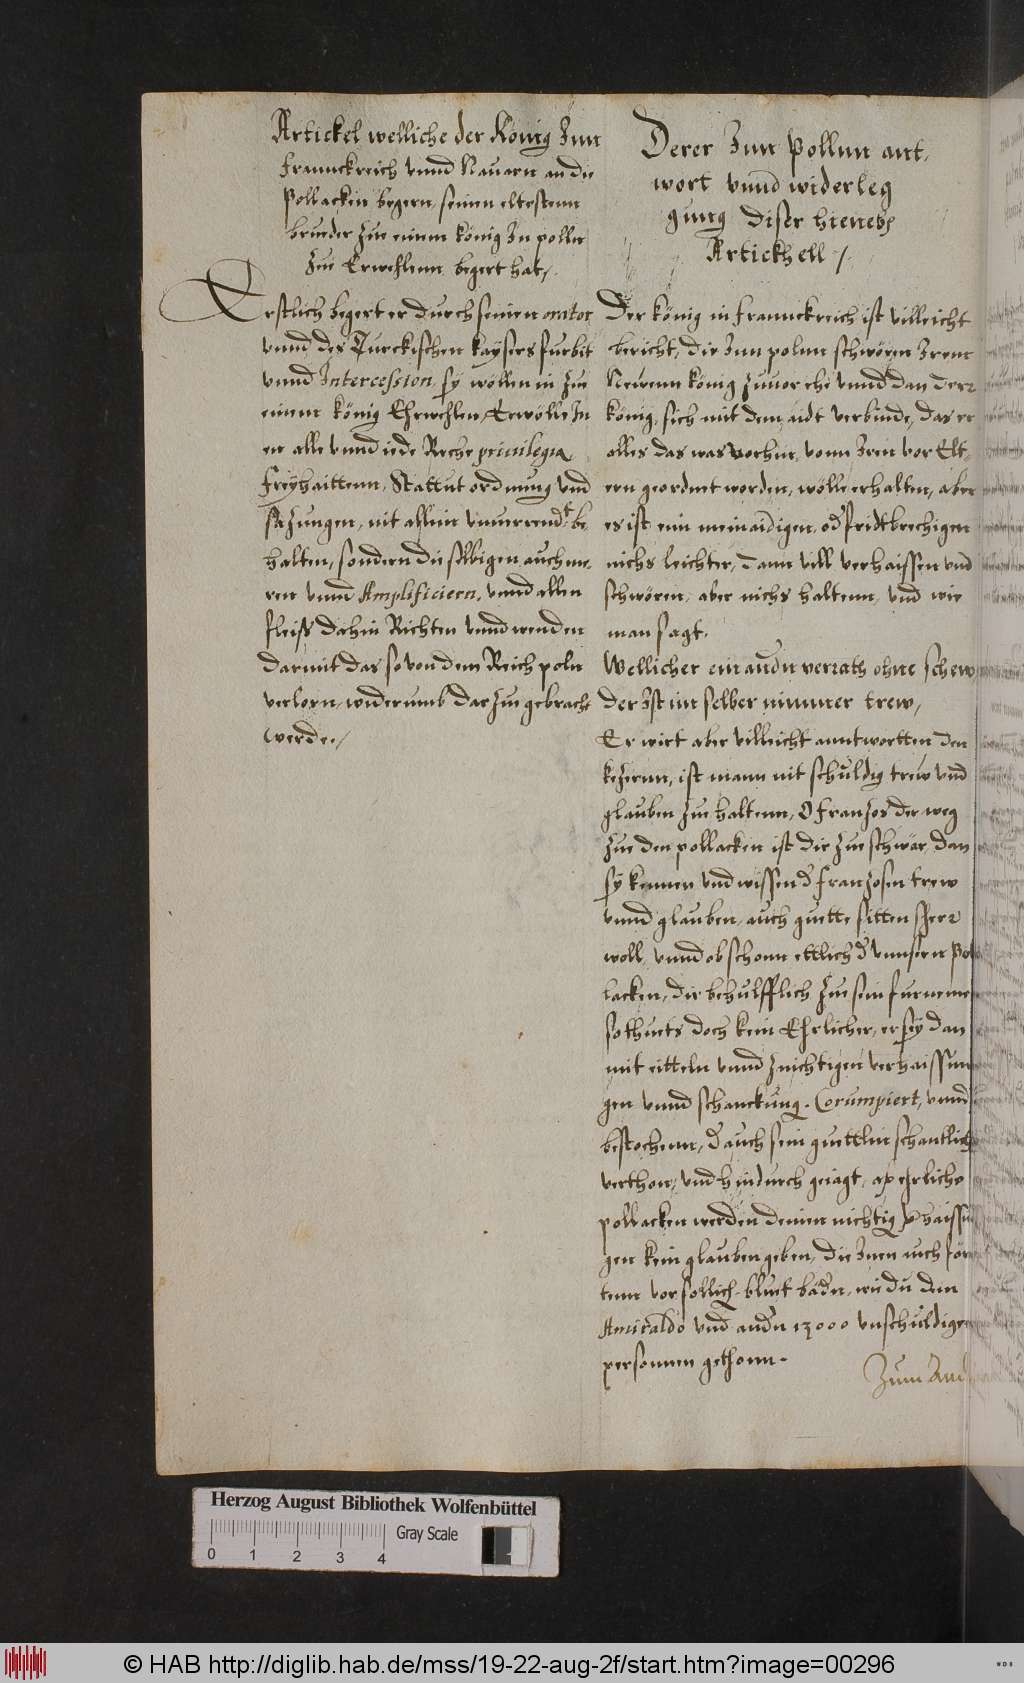 Artickel welliche der König Inn
Frannckreich vnnd Nauarn an die
Pollacken begern, seinen eltestenn
brueder zue einem könig In polln
zue Erwehlenn begert hat,
Erstlich begert er durch seinen orator
vnnd des Turckischen kaysers furbit
vnnd Intercession, sy wöllen in zue
einem könig Ehrwehlen, Er wölle In
en alle vnnd iede Reche priuilegia
freyhaittenn, Stattut ordnung vnd
sazungen, nit allein vnuerrendt be
halten, sondern die selbigen auch me,
ren vnnd Amplificiern, vnnd allen
fleiss dahin Richten vnnd wenden
darmit das so von dem Reich poln
verlorn, widerumb darzue gebracht
werde,/
Derer Inn Pollnn ant,
wort vnnd widerleg
gung diser hieneben
Artickhell /.
Der könig in Franckreich ist villeicht
bericht, die Inn polnn schwören Irem
Newenn könig zuuor ehe vnnd dan der
könig, sich mit dem aidt verbinde, das er
alles das was vorhin, vonn Iren vor Elt,
ern geordnet worden, wölle erhalten, aber
es ist ein meinaidigen, od fridtbrechigen
nichs leichter, dann vill verhaissen vnd
schwören, aber nichs haltenn, vnd wie
man sagt.
Wellicher ein andn verrath ohne schew
der Ist im selber nimmer trew,
Er wirt aber villeicht anntwortten den
kezernn, ist mann nit schuldig trew vnd
glauben zue haltenn, O Franzos der weg
zue den pollacken ist dir zue schwär, dan
sy kennen vnd wissen d franzosen trew
vnnd glauben, auch guette sitten seer
woll, vnnd ob schonn ettlich d vnnsern Pol
lacken, dir behulfflich zue sein furneme
so thuets doch kein Ehrlicher, er sey dan
mit eitteln vnnd znichtigen verhaissun
gen vnnd schanckung. Corumpiert, vnnd
bestochenn, d auch sein guettlin schantlich
verthon, vnd hindurch geiagt, ehrliche
pollacken werden deinen nichtig verhaissu
gen kein glauben geben, die Inen auch för
tenn vor sollich bluet bädn, wie du dem
Amiraldo vnd andn 13000 vnschuldigen
personnen gethonn.
Zum And
Herzog August Bibliothek Wolfenbüttel
Gray Scale
0 1 2 3 4
© HAB http://diglib.hab.de/mss/19-22-aug-2f/start.htm?image=00296